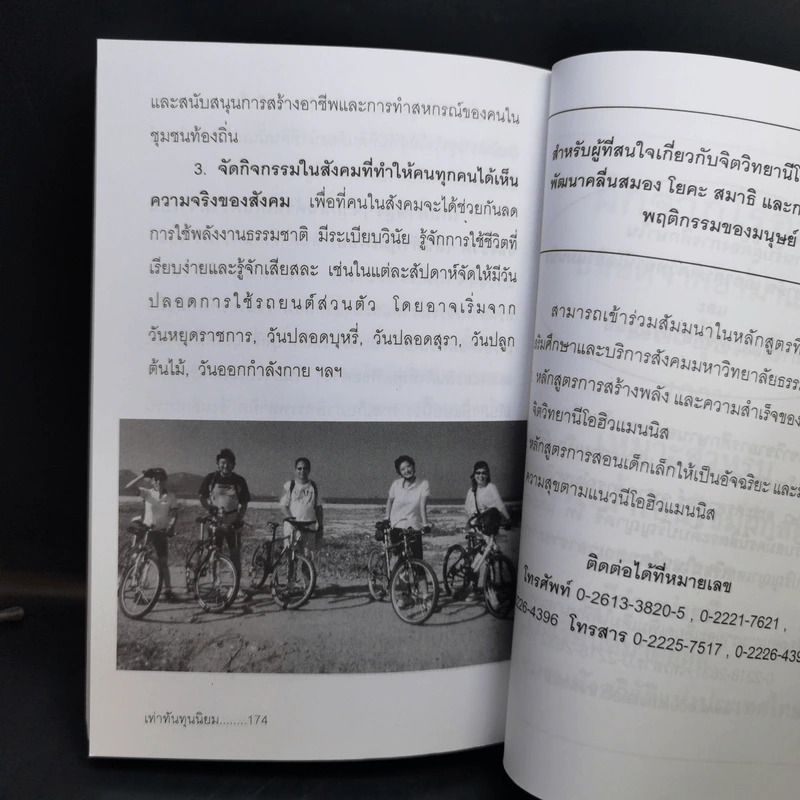 และสนับสนุนการสร้างอาชีพและการทำสหกรณ์ของคนใน
ชุมชนท้องถิ่น
3. จัดกิจกรรมในสังคมที่ทำให้คนทุกคนได้เห็น
ความจริงของสังคม เพื่อที่คนในสังคมจะได้ช่วยกันลด
การใช้พลังงานธรรมชาติ มีระเบียบวินัย รู้จักการใช้ชีวิตที่
เรียบง่ายและรู้จักเสียสละ เช่นในแต่ละสัปดาห์จัดให้มีวัน
ปลอดการใช้รถยนต์ส่วนตัว โดยอาจเริ่มจาก
วันหยุดราชการ, วันปลอดบุหรี่, วันปลอดสุรา, วันปลูก
ต้นไม้, วันออกกำลังกาย ฯลฯ
เท่าทันทุนนิยม........174
สำหรับผู้ที่สนใจเกี่ยวกับจิตวิทยานีโ
พัฒนาคลื่นสมอง โยคะ สมาธิ และก
พฤติกรรมของมนุษย์
สามารถเข้าร่วมสัมมนาในหลักสูตรที่
ศึกษาและบริการสังคมมหาวิทยาลัยธรร
หลักสูตรการสร้างพลัง และความสำเร็จของ
จิตวิทยานีโอฮิวแมนนิส
หลักสูตรการสอนเด็กเล็กให้เป็นอัจฉริยะ และมี
ความสุขตามแนวนีโอฮิวแมนนิส
ติดต่อได้ที่หมายเลข
โทรศัพท์ 0-2613-3820-5 , 0-2221-7621 ,
226-4396 โทรสาร 0-2225-7517 , 0-2226-439